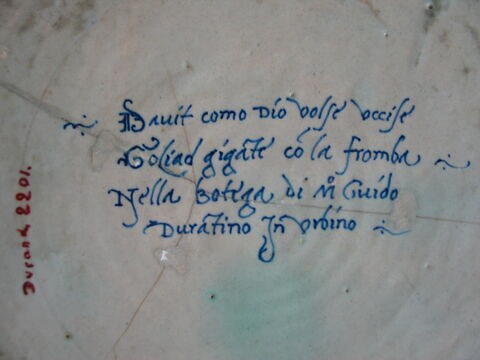 Dauit como Dio volse vccise
Goliad gigāte cō la fromba
Nella Botega di Mº Guido
Durātino In vrbino
Durand 2201.